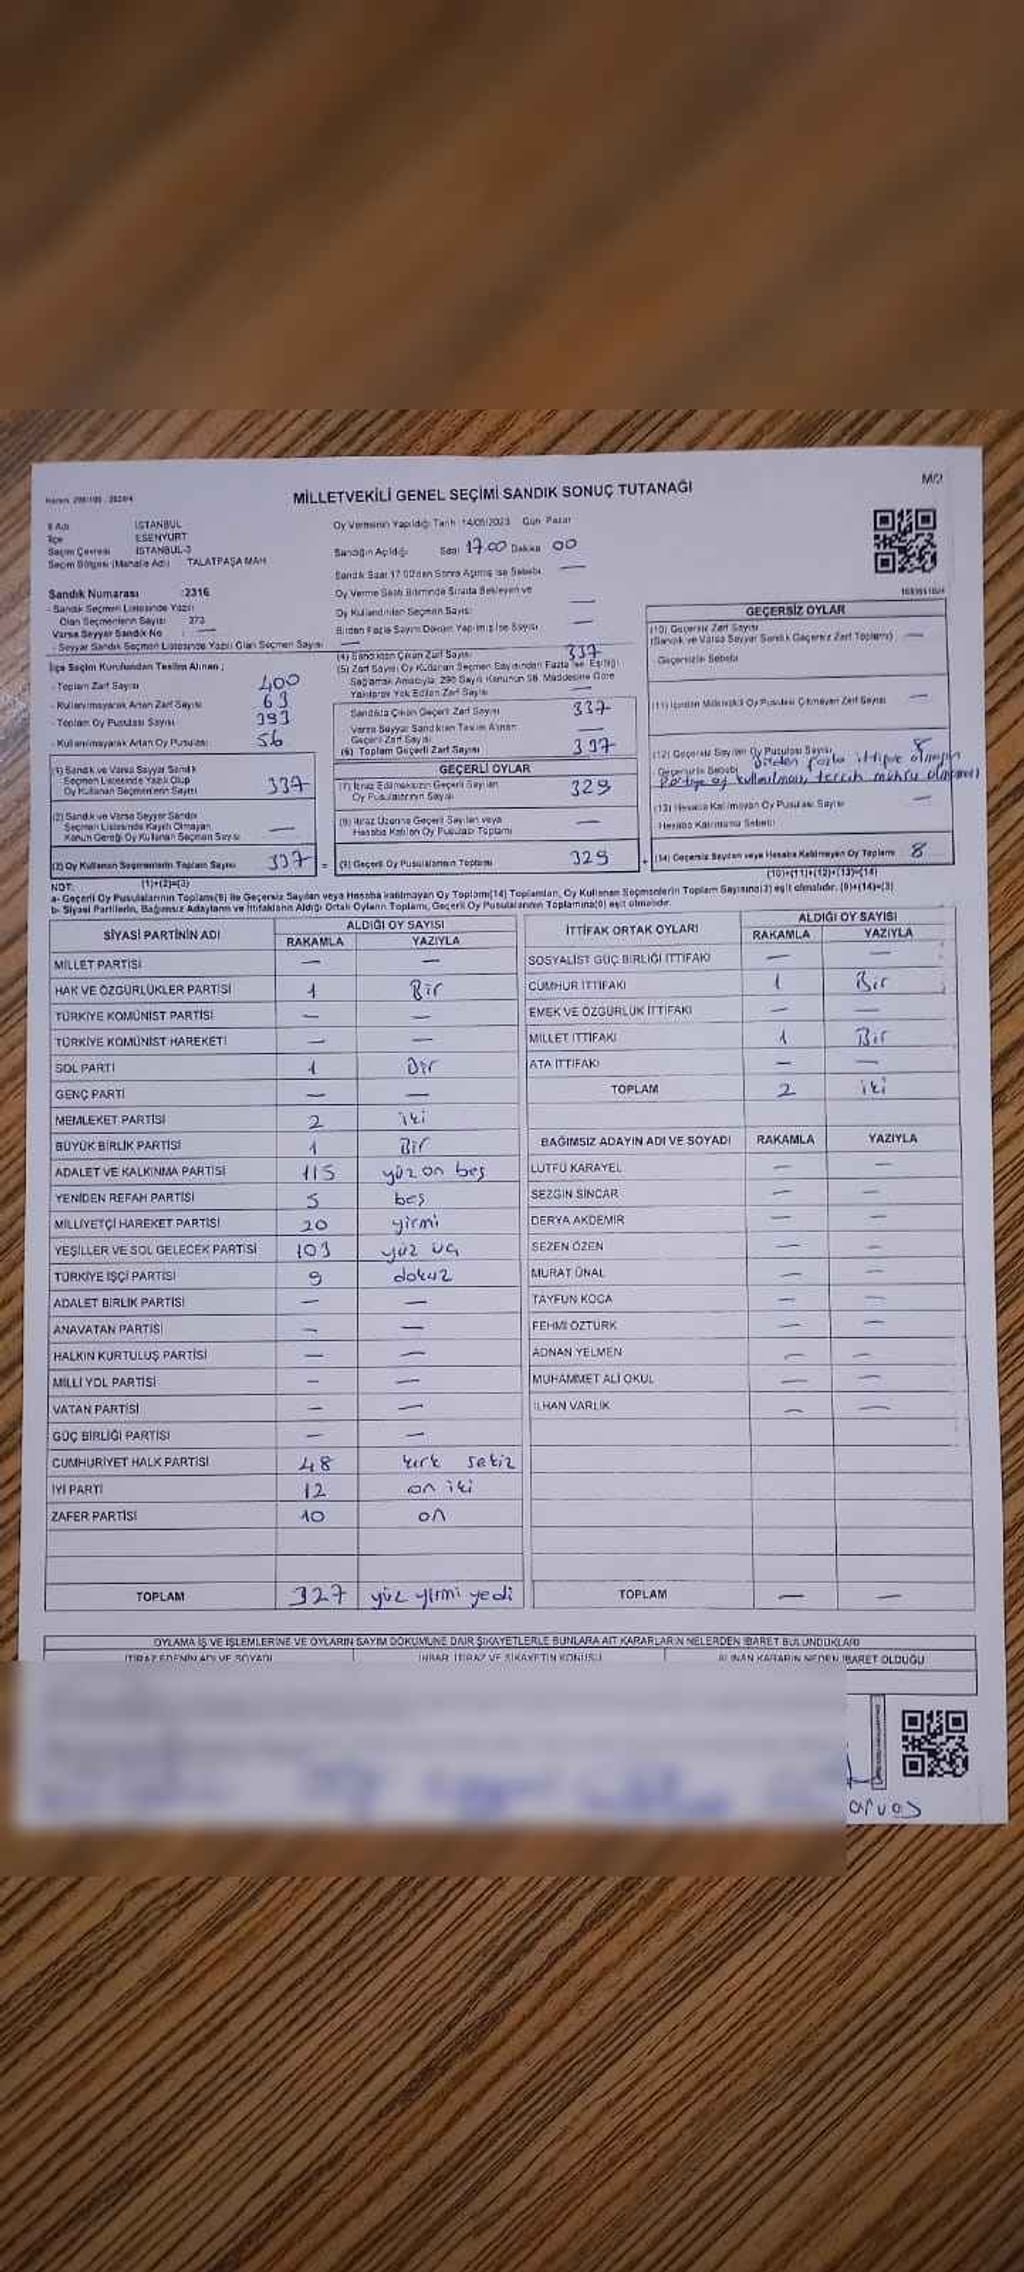 MİLLETVEKİLİ GENEL SEÇİMİ SANDIK SONUÇ TUTANAĞI
İl Adı İSTANBUL
İlçe ESENYURT
Seçim Çevresi İSTANBUL-3
Seçim Bölgesi (Mahalle Adı) TALATPAŞA MAH
Sandık Numarası :2316
- Sandık Seçmen Listesinde Yazılı
Olan Seçmenlerin Sayısı 373
Varsa Seyyar Sandık No : —
- Seyyar Sandık Seçmen Listesinde Yazılı Olan Seçmen Sayısı —
İlçe Seçim Kurulundan Teslim Alınan ;
- Toplam Zarf Sayısı 400
- Kullanılmayarak Artan Zarf Sayısı 63
- Toplam Oy Pusulası Sayısı 393
- Kullanılmayarak Artan Oy Pusulası 56
(1) Sandık ve Varsa Seyyar Sandık
Seçmen Listesinde Yazılı Olup
Oy Kullanan Seçmenlerin Sayısı 337
(2) Sandık ve Varsa Seyyar Sandık
Seçmen Listesinde Kayıtlı Olmayan
Kanun Gereği Oy Kullanan Seçmen Sayısı —
(3) Oy Kullanan Seçmenlerin Toplam Sayısı 337
(1)+(2)=(3)
Oy Vermenin Yapıldığı Tarih 14/05/2023 Gün Pazar
Sandığın Açıldığı Saat 17.00 Dakika 00
Sandık Saat 17:00'den Sonra Açılmış İse Sebebi —
Oy Verme Saati Bitiminde Sırada Bekleyen ve
Oy Kullandırılan Seçmen Sayısı —
Birden Fazla Sayım Döküm Yapılmış İse Sayısı —
(4) Sandıktan Çıkan Zarf Sayısı 337
(5) Zarf Sayısı Oy Kullanan Seçmen Sayısından Fazla ise, Eşitliği
Sağlamak Amacıyla, 298 Sayılı Kanunun 98. Maddesine Göre
Yakılarak Yok Edilen Zarf Sayısı —
Sandıkta Çıkan Geçerli Zarf Sayısı 337
Varsa Seyyar Sandıktan Teslim Alınan
Geçerli Zarf Sayısı —
(6) Toplam Geçerli Zarf Sayısı 337
GEÇERLİ OYLAR
(7) İtiraz Edilmeksizin Geçerli Sayılan
Oy Pusulalarının Sayısı 329
(8) İtiraz Üzerine Geçerli Sayılan veya
Hesaba Katılan Oy Pusulası Toplamı —
(9) Geçerli Oy Pusulalarının Toplamı 329
GEÇERSİZ OYLAR
(10) Geçersiz Zarf Sayısı
(Sandık ve Varsa Seyyar Sandık Geçersiz Zarf Toplamı) —
Geçersizlik Sebebi
(11) İçinden Milletvekili Oy Pusulası Çıkmayan Zarf Sayısı —
(12) Geçersiz Sayılan Oy Pusulası Sayısı 8
Geçersizlik Sebebi Birden fazla ittifak olmayan
Partiye oy kullanılması, tercih mührü olmaması
(13) Hesaba Katılmayan Oy Pusulası Sayısı —
Hesaba Katılmama Sebebi
(14) Geçersiz Sayılan veya Hesaba Katılmayan Oy Toplamı 8
(10)+(11)+(12)+(13)=(14)
NOT:
a- Geçerli Oy Pusulalarının Toplamı(9) ile Geçersiz Sayılan veya Hesaba katılmayan Oy Toplamı(14) Toplamları, Oy Kullanan Seçmenlerin Toplam Sayısına(3) eşit olmalıdır. (9)+(14)=(3)
b- Siyasi Partilerin, Bağımsız Adayların ve İttifakların Aldığı Ortak Oyların Toplamı, Geçerli Oy Pusulalarının Toplamına(9) eşit olmalıdır.
SİYASİ PARTİNİN ADI ALDIĞI OY SAYISI
RAKAMLA YAZIYLA
MİLLET PARTİSİ — —
HAK VE ÖZGÜRLÜKLER PARTİSİ 1 Bir
TÜRKİYE KOMÜNİST PARTİSİ — —
TÜRKİYE KOMÜNİST HAREKETİ — —
SOL PARTİ 1 Bir
GENÇ PARTİ — —
MEMLEKET PARTİSİ 2 iki
BÜYÜK BİRLİK PARTİSİ 1 Bir
ADALET VE KALKINMA PARTİSİ 115 yüz on beş
YENİDEN REFAH PARTİSİ 5 beş
MİLLİYETÇİ HAREKET PARTİSİ 20 yirmi
YEŞİLLER VE SOL GELECEK PARTİSİ 103 yüz üç
TÜRKİYE İŞÇİ PARTİSİ 9 dokuz
ADALET BİRLİK PARTİSİ — —
ANAVATAN PARTİSİ — —
HALKIN KURTULUŞ PARTİSİ — —
MİLLİ YOL PARTİSİ — —
VATAN PARTİSİ — —
GÜÇ BİRLİĞİ PARTİSİ — —
CUMHURİYET HALK PARTİSİ 48 kırk sekiz
İYİ PARTİ 12 on iki
ZAFER PARTİSİ 10 on
TOPLAM 327 yüz yirmi yedi
İTTİFAK ORTAK OYLARI ALDIĞI OY SAYISI
RAKAMLA YAZIYLA
SOSYALİST GÜÇ BİRLİĞİ İTTİFAKI — —
CUMHUR İTTİFAKI 1 Bir
EMEK VE ÖZGÜRLÜK İTTİFAKI — —
MİLLET İTTİFAKI 1 Bir
ATA İTTİFAKI — —
TOPLAM 2 iki
BAĞIMSIZ ADAYIN ADI VE SOYADI RAKAMLA YAZIYLA
LÜTFÜ KARAYEL — —
SEZGİN SİNCAR — —
DERYA AKDEMİR — —
SEZEN ÖZEN — —
MURAT ÜNAL — —
TAYFUN KOCA — —
FEHMİ ÖZTÜRK — —
ADNAN YELMEN — —
MUHAMMET ALİ OKUL — —
İLHAN VARLIK — —
TOPLAM — —
OYLAMA İŞ VE İŞLEMLERİNE VE OYLARIN SAYIM DÖKÜMÜNE DAİR ŞİKAYETLERLE BUNLARA AİT KARARLARIN NELERDEN İBARET BULUNDUKLARI
İTİRAZ EDENİN ADI VE SOYADI İHBAR, İTİRAZ VE ŞİKAYETİN KONUSU ALINAN KARARIN NEDEN İBARET OLDUĞU